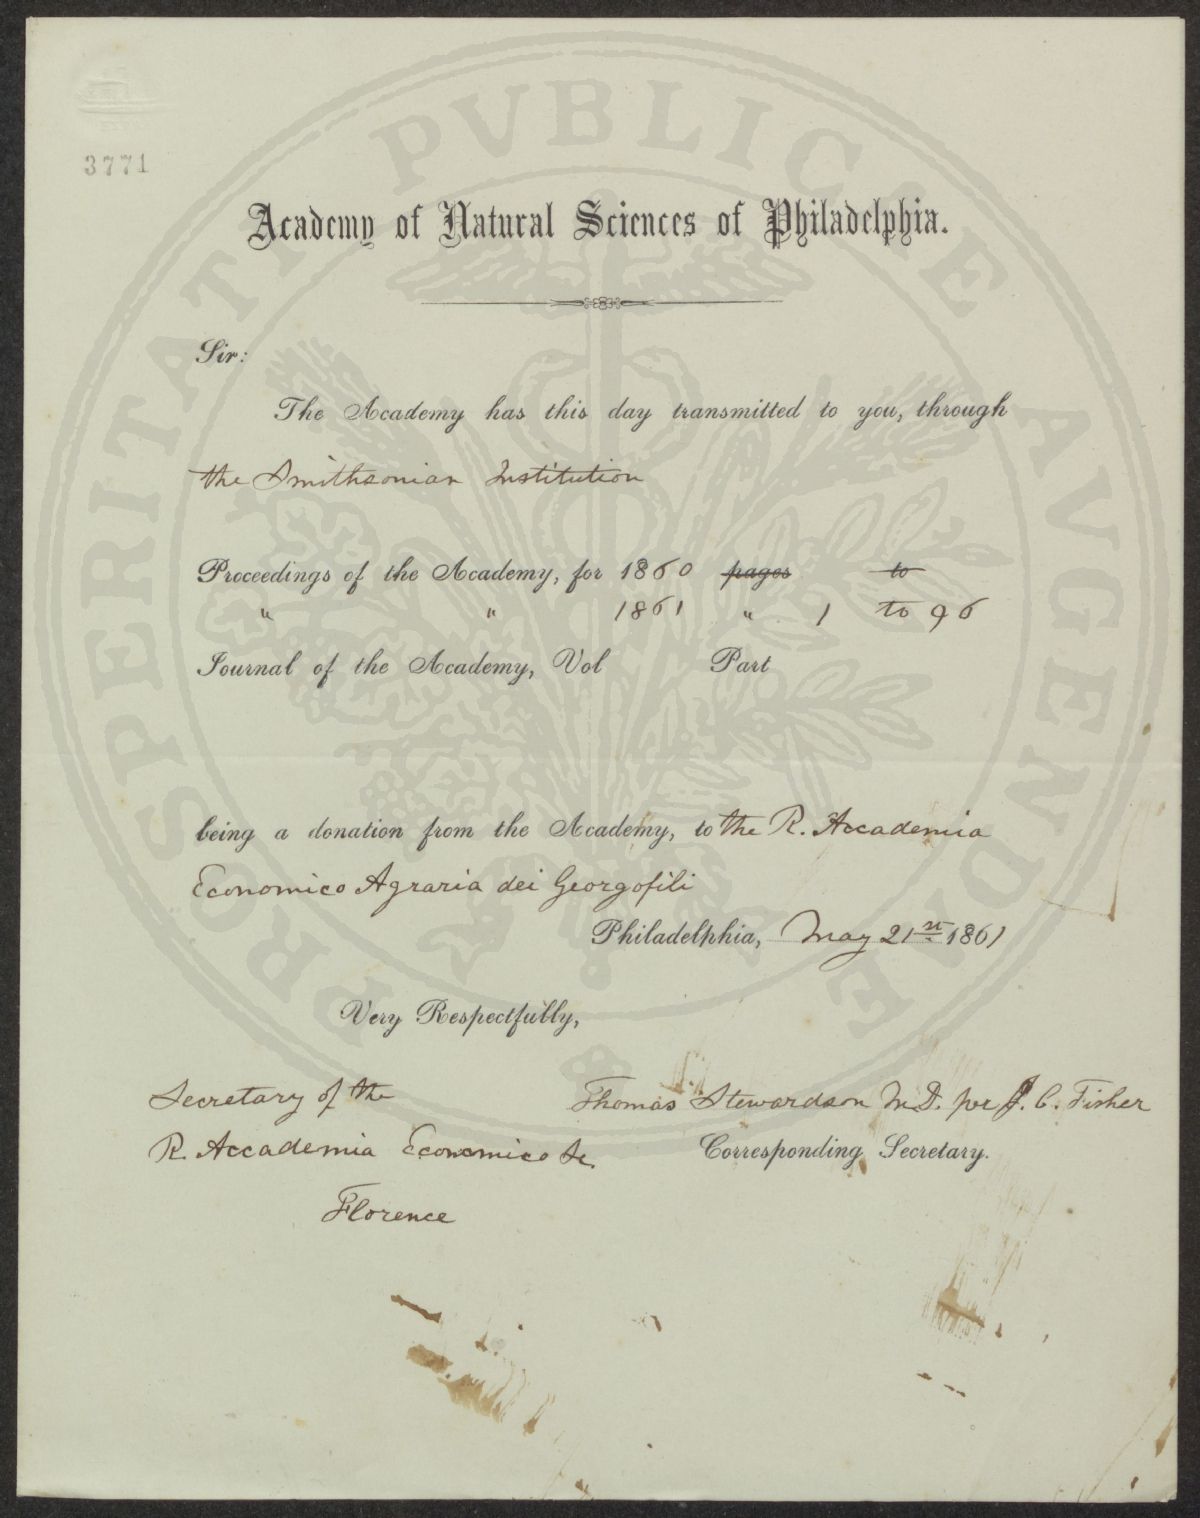 PROSPERITATI PUBLICAE AVGENDAE
3771
Academy of Natural Sciences of Philadelphia.
Sir:
The Academy has this day transmitted to you, through
the Smithsonian Institution
Proceedings of the Academy, for 1860 pages to
" " 1861 " 1 to 96
Journal of the Academy, Vol Part
being a donation from the Academy, to the R. Accademia
Economico Agraria dei Georgofili
Philadelphia, May 21st 1861
Very Respectfully,
Secretary of the
R. Accademia Economico &c.
Florence
Thomas Stewardson M.D. per J. C. Fisher
Corresponding Secretary.